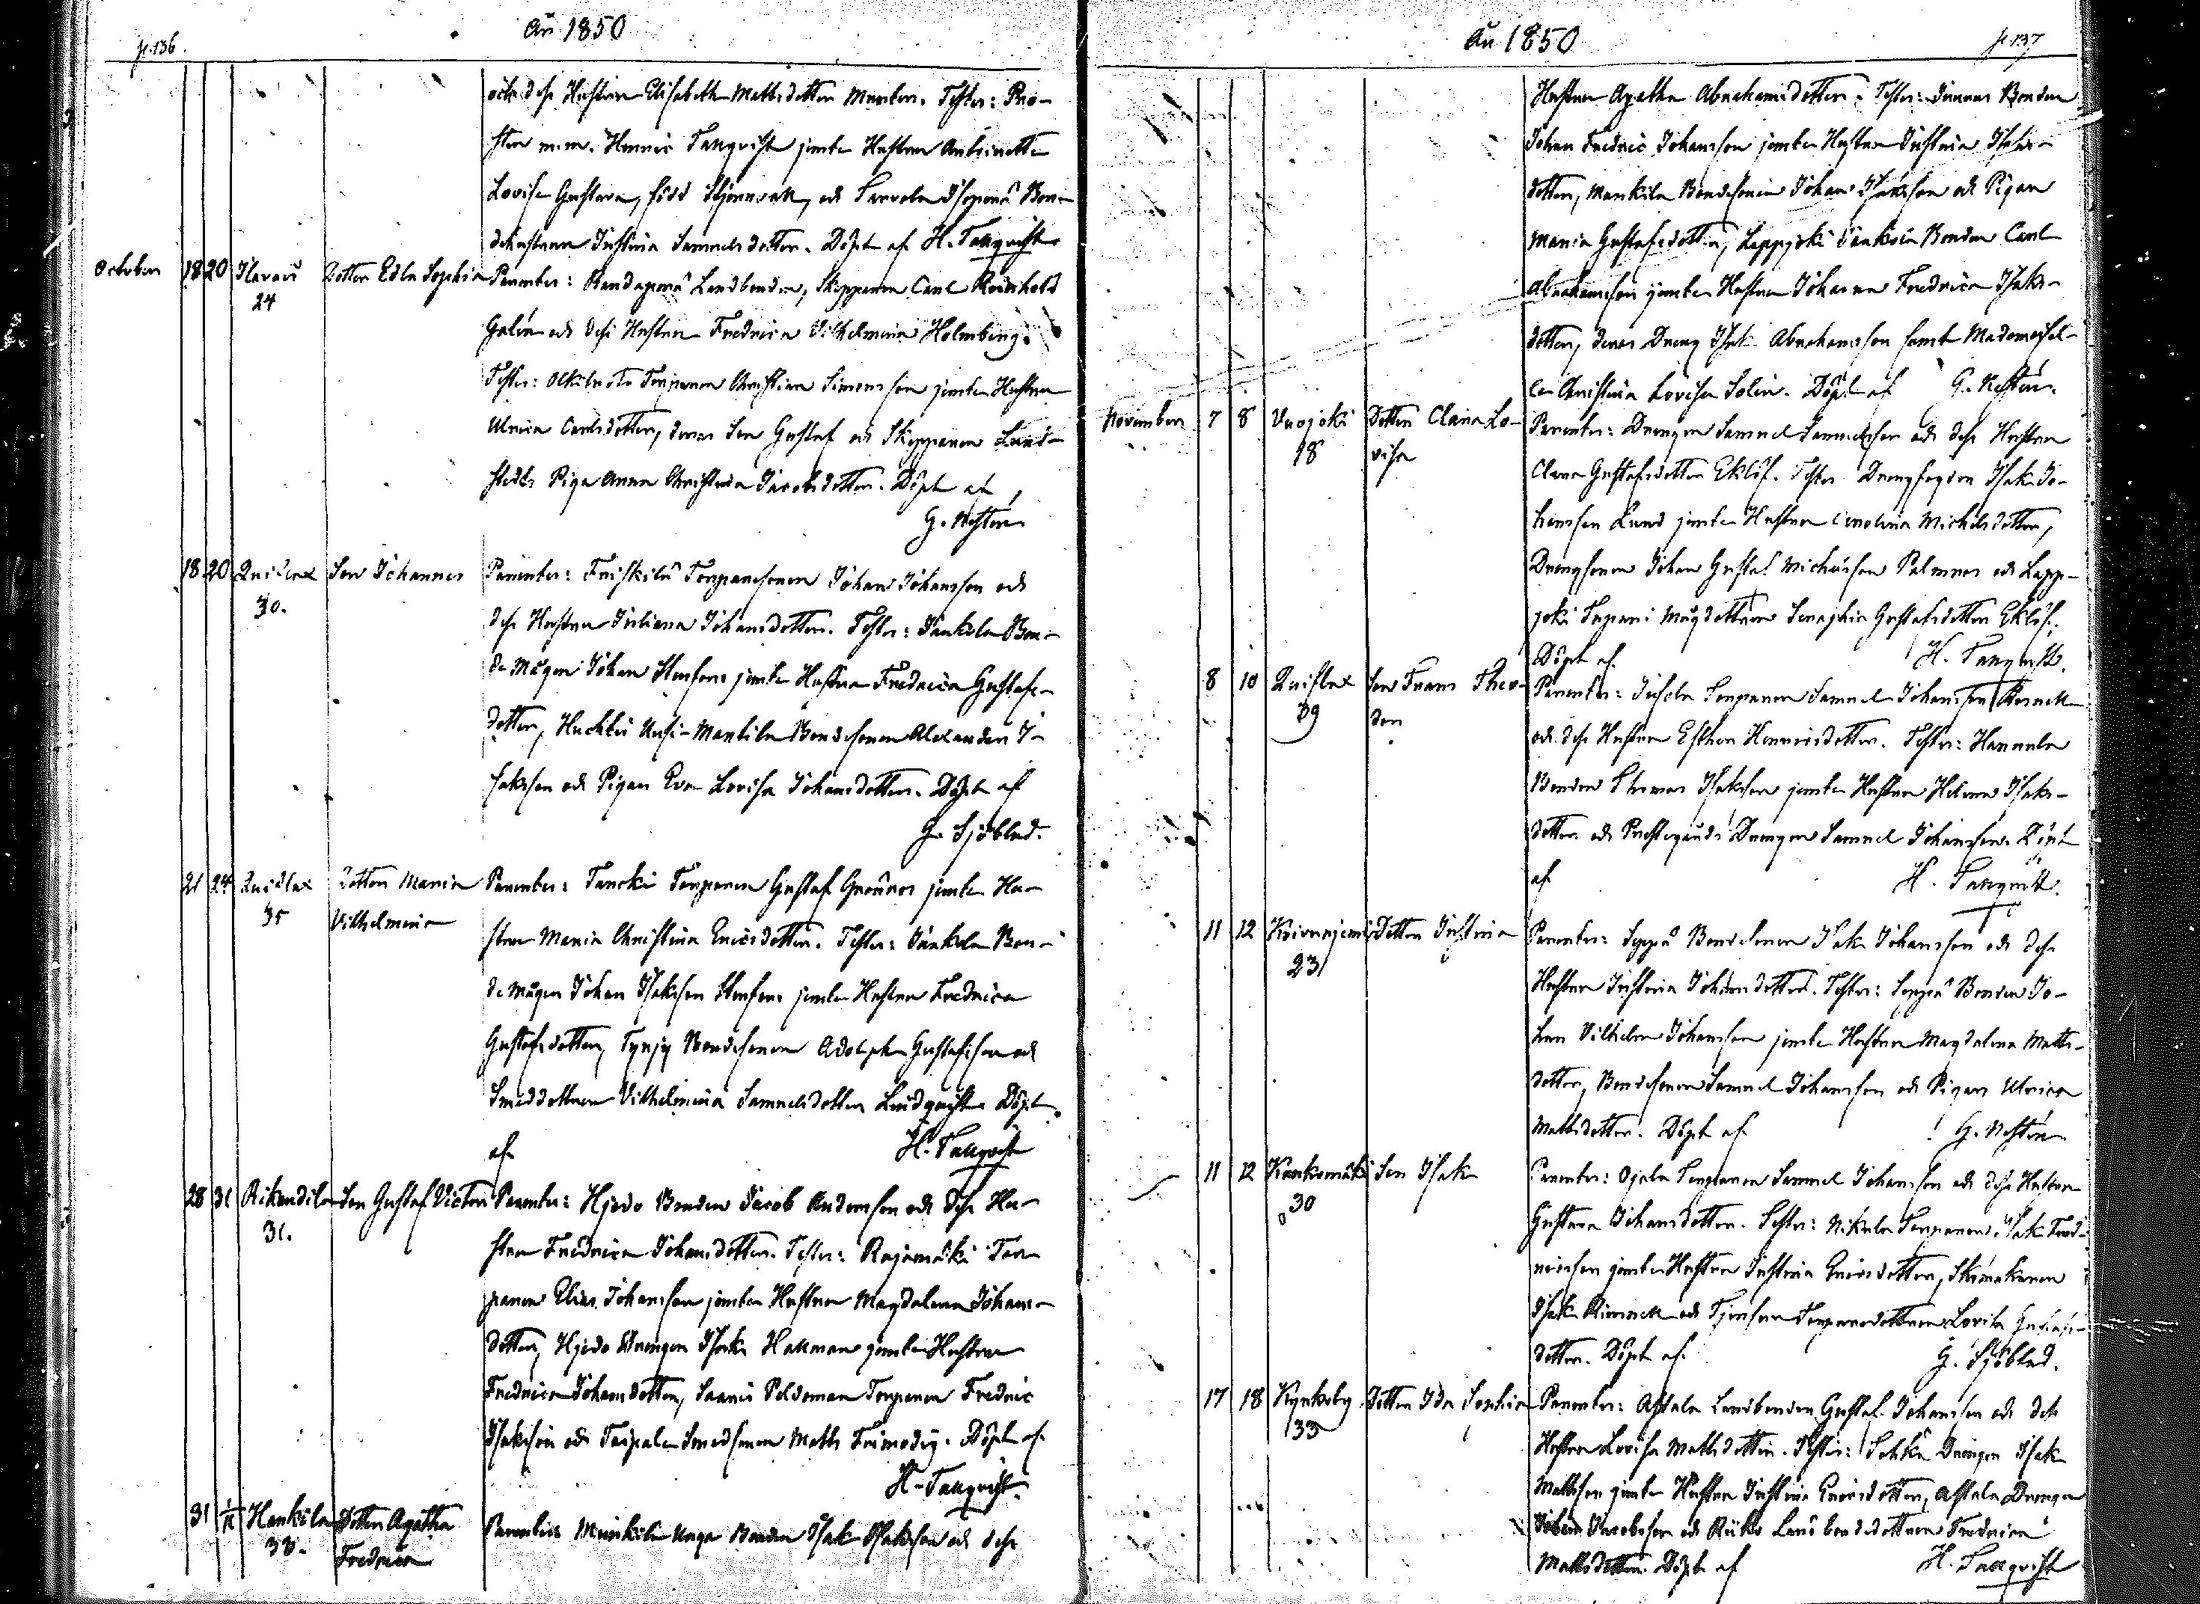 p. 136.
Añ 1850
och dess Hustru Elisabeth Mattsdotter Munter. Testes: Pro-
sten m.m. Henric Tallqvist jemte Hustru Antoinette
Lovisa Gustava, född och Bon-
dehustrun Justina Samuelsdotter. Döpt af H. Tallqvist
October 18 20 24 Dotter Edla Sophia Parenter: Landbonden, Skepparen Carl Reinhold
Galén och dess Hustru Fredrica Vilhelmina Holmberg.
Testes: Torparen Christian Simonsson jemte Hustru
Ulrica Carlsdotter, deras Son Gustaf och Skepparen Lund-
stedts Piga Anna Christina Jacobsdotter. Döpt af
G. Nostén
18 20 30. Son Johannes Parenter: Torparesonen Johan Johansson och
dess Hustru Juliana Johansdotter. Testes: Bon-
de Mågen Johan Stenfors jemte Hustru Fredrica Gustafs-
dotter, Uusi-Mankila Bondesonen Alexander I-
saksson och Pigan Eva Lovisa Johansdotter. Döpt af
G. Sjöblad.
21 24 35 Dotter Maria Parenter: Torparen Gustaf Grönros jemte Hu-
Vilhelmina stru Maria Christina Ericsdotter. Testes: Bon-
de Mågen Johan Isaksson Stenfors jemte Hustru Fredrica
Gustafsdotter, Tynjy Bondesonen Adolph Gustafsson och
Smeddottren Vilhelmina Samuelsdotter Lindqvist. Döpt
af H. Tallqvist
28 31 Rikandila 31. Son Gustaf Victor Parenter: Hjedo Bonden Jacob Andersson och dess Hu-
stru Fredrica Johansdotter. Testes: Rajamäki Tor-
paren Elias Johansson jemte Hustru Magdalena Johans-
dotter, Hjedo Drängen Isak Hallman jemte Hustru
Fredrica Johansdotter, Torparen Fredric
Isaksson och Taipale Smedsonen Matts Frimodig. Döpt af
H. Tallqvist.
31 Hankila 38. Dotter Agatha Parenter: Unga Bonden Isak Isaksson och dess
Fredrica
Añ 1850
p. 137
Hustru Agatha Abrahamsdotter. Testes: Bonden
Johan Fredric Johansson jemte Hustru Justina Isaks-
dotter, Mankila Bondesonen Johan Isaksson och Pigan
Maria Gustafsdotter, Lappjoki Bonden Carl
Abrahamsson jemte Hustru Johanna Fredrica Isaks-
dotter, deras Dreng Isak Abrahamsson samt Mademoisel-
len Christina Lovisa Solin. Döpt af G. Nostén.
November 7 8 Vuojoki 18 Dotter Clara Lo- Parenter: Drängen Samuel Samuelsson och dess Hustru
visa Clara Gustafsdotter Eklöf. Testes Drengfogden Isak Jo-
hansson Lund jemte Hustru Carolina Michelsdotter,
Drengsonen Johan Gustaf Michelsson Palmros och Lapp-
joki Mågdottren Seraphia Gustafsdotter Eklöf.
Döpt af H. Tallqvist.
8 10 39 Son Frans Theo- Parenter: Torparen Samuel Johansson
dor och dess Hustru Esther Henricsdotter. Testes: Hannula
Bonden Thomas Isaksson jemte Hustru Helena Isaks-
dotter och Prestegårds Drengen Samuel Johansson. Döpt
af H. Tallqvist.
11 12 Koivuniemi 23 Dotter Justina Parenter: Seppä Bondesonen Isak Johansson och dess
Hustru Justina Johansdotter. Testes: Seppä Bonden Jo-
han Vilhelm Johansson jemte Hustru Magdalena Matts-
dotter, Bondesonen Samuel Johansson och Pigan Ulrica
Mattsdotter. Döpt af G. Nostén
11 12 Kaukomäki 30 Son Isak Parenter: Ojala Torparen Samuel Johansson och dess Hustru
Gustava Johansdotter. Testes: Nikula Torparen Isak Fred-
ricsson jemte Hustru Justina Ericsdotter, Skomakaren
Isak och Torparedottren Lovisa Gustafs-
dotter. Döpt af G. Sjöblad.
17 18 Kynksby 33 Dotter Ida Sophia Parenter: Astala Landbonden Gustaf Johansson och dess
Hustru Lovisa Mattsdotter. Testes: Drengen Isak
Mattsson jemte Hustru Justina Ericsdotter, Astala Drengen
Johan Jacobsson och Landbondedottren Fredrica
Mattsdotter. Döpt af H. Tallqvist